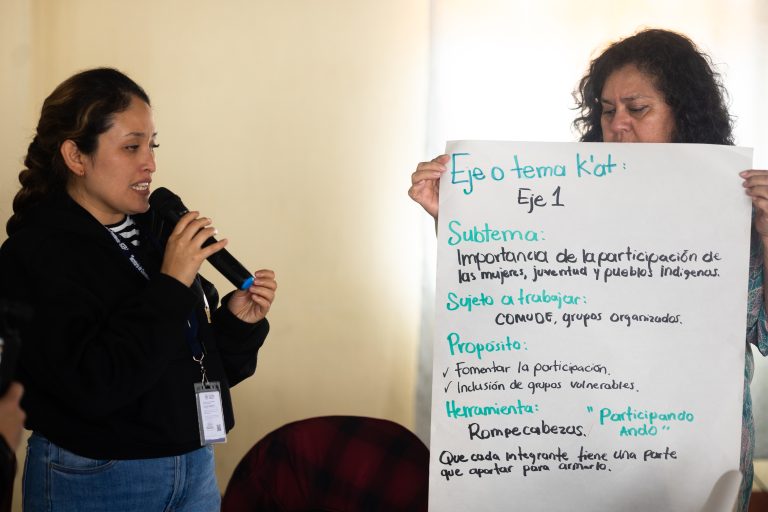 Eje o tema k'at:
Eje 1
Subtema:
Importancia de la participación de
las mujeres, juventud y pueblos indígenas.
Sujeto a trabajar:
COMUDE, grupos organizados.
Propósito:
✓ Fomentar la participación.
✓ Inclusión de grupos vulnerables.
Herramienta: "Participando
Rompecabezas. Ando"
Que cada integrante tiene una parte
que aportar para armarlo.